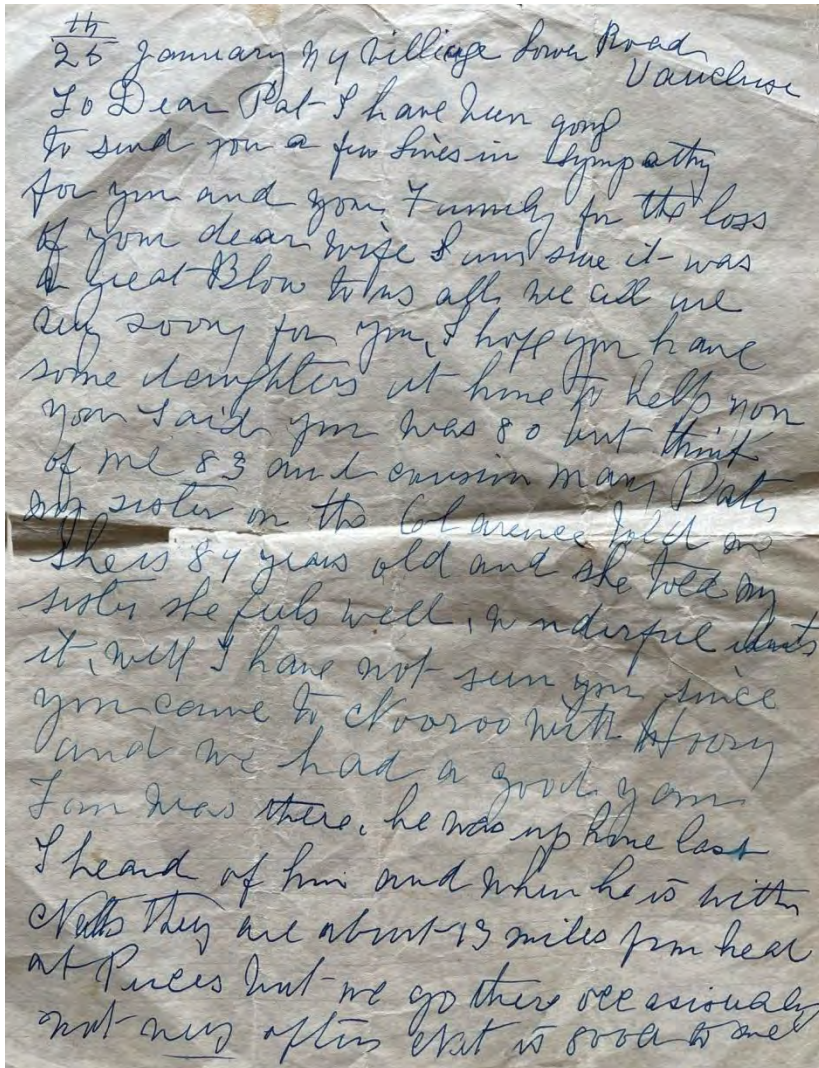 25th January 74 Village Lower Road
Vaucluse
To Dear Pat I have been going
to send you a few lines in sympathy
for you and your Family for the loss
of your dear wife I am sure it was
a great Blow to us all, we all are
very sorry for you, I hope you have
some daughters at home to help you
you said you was 80 but think
of me 83 and cousin Mary Pates
my sister on the Clarence told me
she is 84 years old and she told my
sister she feels well, wonderful
it, well I have not seen you since
you came to Nooroo with Harry
and we had a good yarn
Tom was there, he was up home last
I heard of him and when he is with
Natts they are about 13 miles from hear
at but we go there occasionaly
not very often Nat is good to me